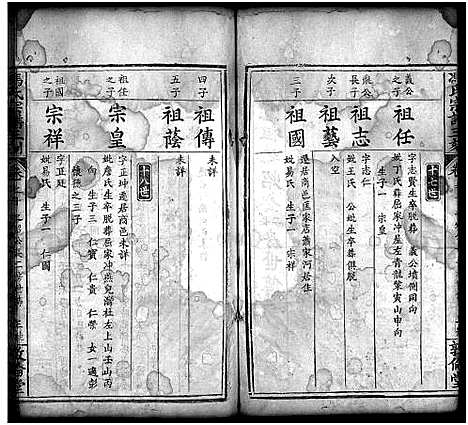 十七世
義公之子
祖任
字志賢生卒脱葬 義公墳側同向
妣丁氏葬屈家冲屋左青龍業寅山申向
生子一 宗皇
長子
祖志
字志仁
妣王氏 公妣生卒葬俱脱
次子
祖藝
入空
三子
祖國
遷居商邑匡家店蕭家河居住
妣易氏 生子一 宗祥
四子
祖傳
未詳
五子
祖蔭
未詳
十八世
祖任之子
宗皇
字正坤遷居商邑未詳
妣詹氏生卒脱葬屈家冲燕兒 社左上山壬山丙
向 生子三 仁寶 仁貴 仁榮 女一適彭
懷 之三子
祖國之子
宗祥
字正廷
妣易氏 生子一 仁國
敦倫堂